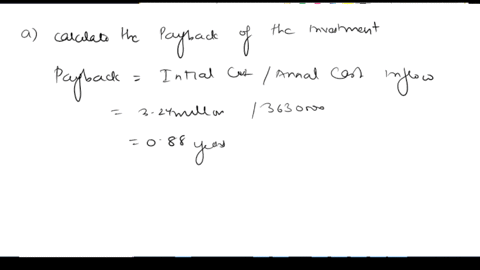 a) Calculate the Payback of the investment
Payback = Intial Cost / Annal Cash inflow
= 3.24 million / 3630000
= 0.88 years